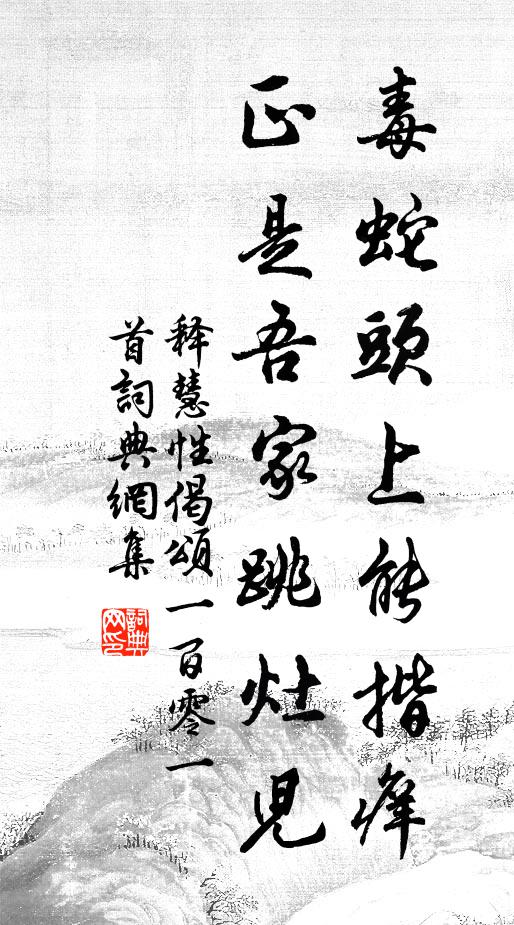 毒蛇頭上能揩癢
正是吾家跳灶兒
释慧性偈頌一百零一
首詞典網集
詞典网印